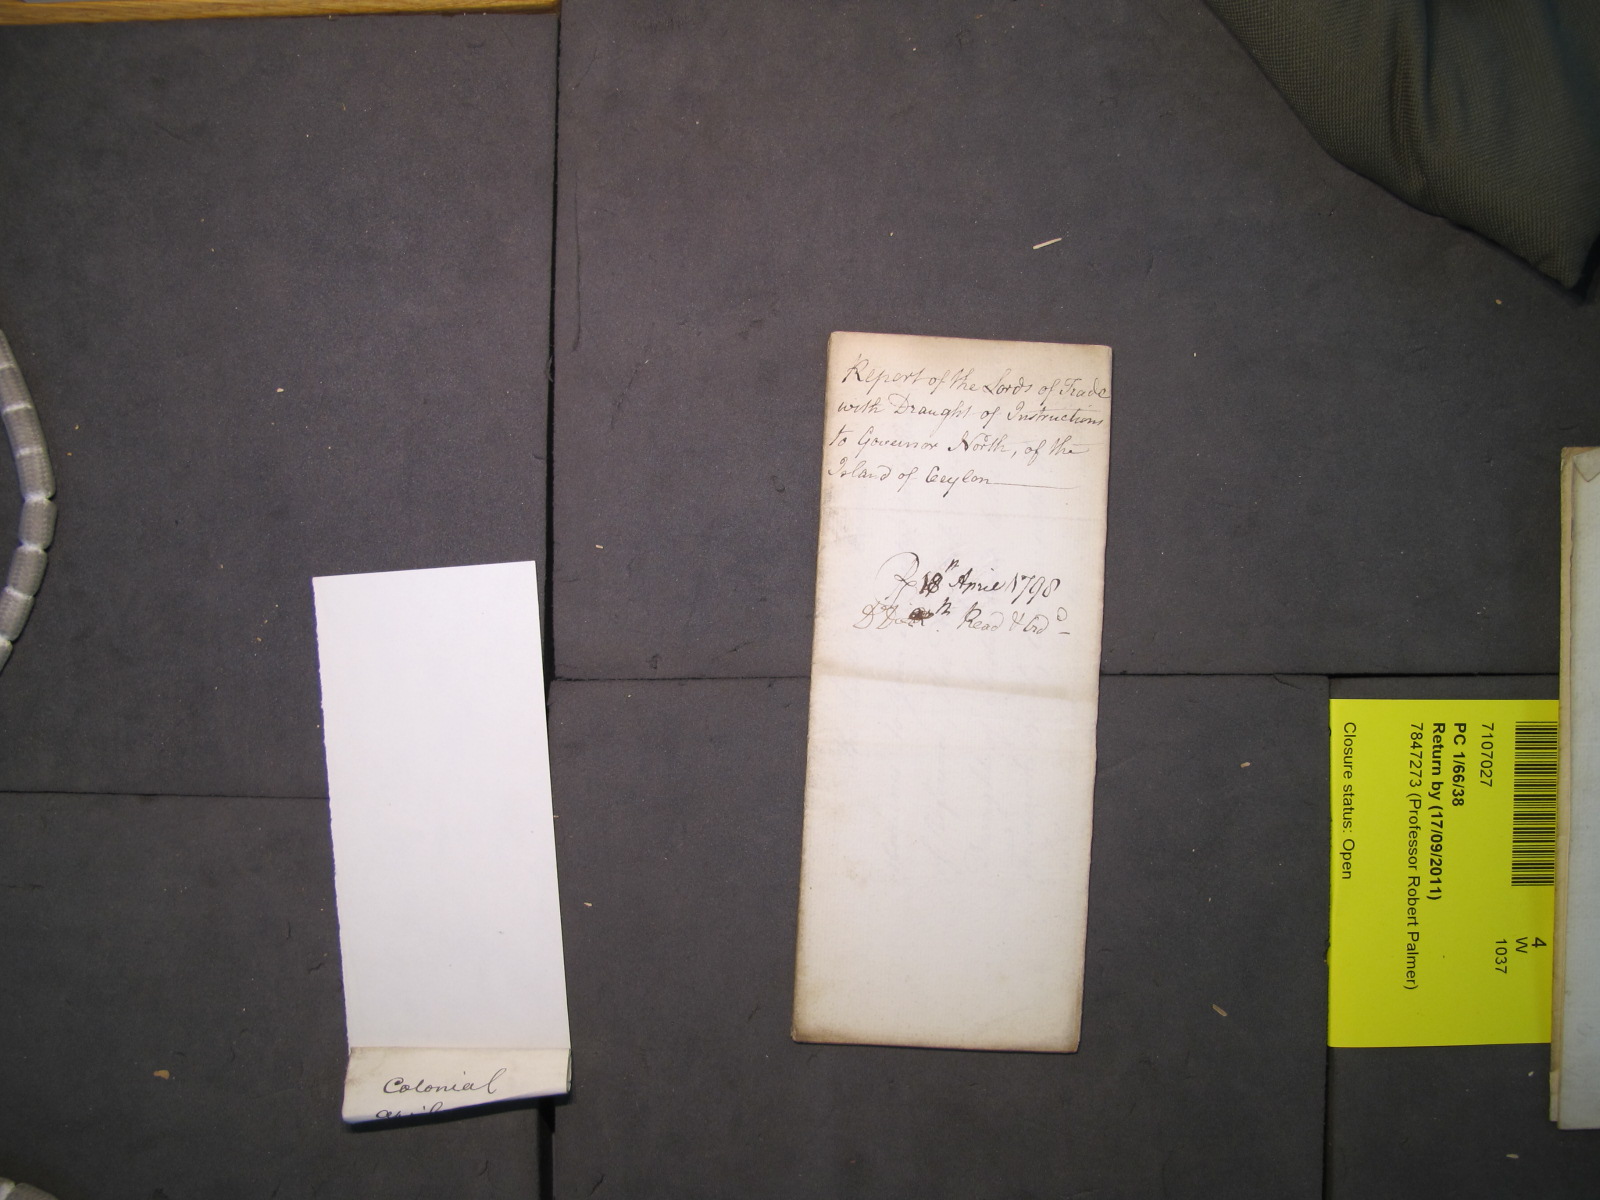 Report of the Lords of Trade
with Draught of Instructions
to Governor North, of the
Island of Ceylon
R 18th April 1798
Read & Ord
Colonial
7107027
PC 1/66/38
Return by (17/09/2011)
7847273 (Professor Robert Palmer)
Closure status: Open
4
W
1037